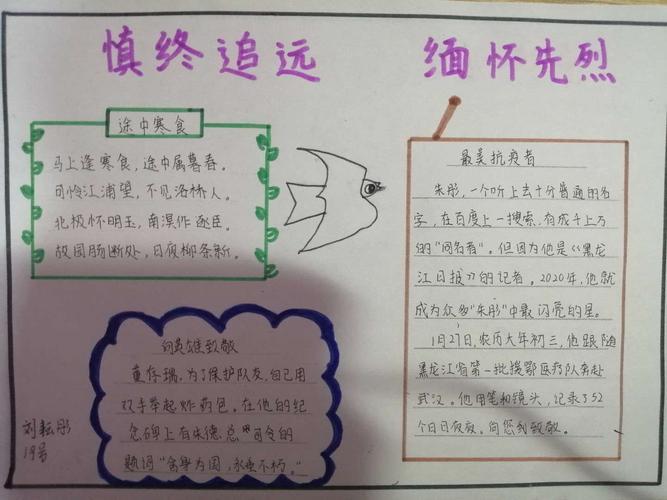 慎终追远 缅怀先烈
途中寒食
马上逢寒食，途中属暮春。
可怜江浦望，不见洛桥人。
北极怀明玉，南溟作逐臣。
故园肠断处，日夜柳条新。
向英雄致敬
董存瑞，为了保护队友，自己用
双手举起炸药包。在他的纪
念碑上有朱德总司令的
题词“舍身为国，永垂不朽。”
刘耘彤
19号
最美抗疫者
朱彤，一个听上去十分普通的名
字，在百度上一搜索，有成千上万
的“同名者”。但因为他是《黑龙
江日报》的记者，2020年，他就
成为众多“朱彤”中最闪亮的星。
1月27日，农历大年初三，他跟随
黑龙江省第一批援鄂医疗队奔赴
武汉。他用笔和镜头，记录了52
个日日夜夜。向您致敬。